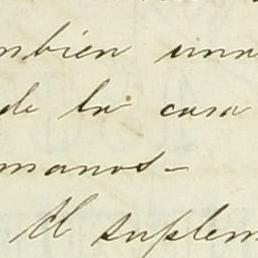 mbien una
de la casa
manos-
El suplem